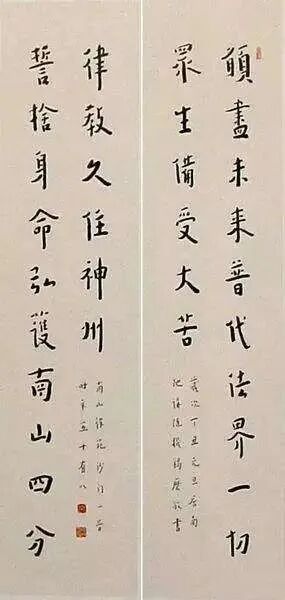 願盡未来普代法界一切
眾生備受大苦
歲次丁丑元旦
講隨機羯磨敬書
誓捨身命弘護南山四分
律教久住神州
南山律苑沙門一音
時年五十有八